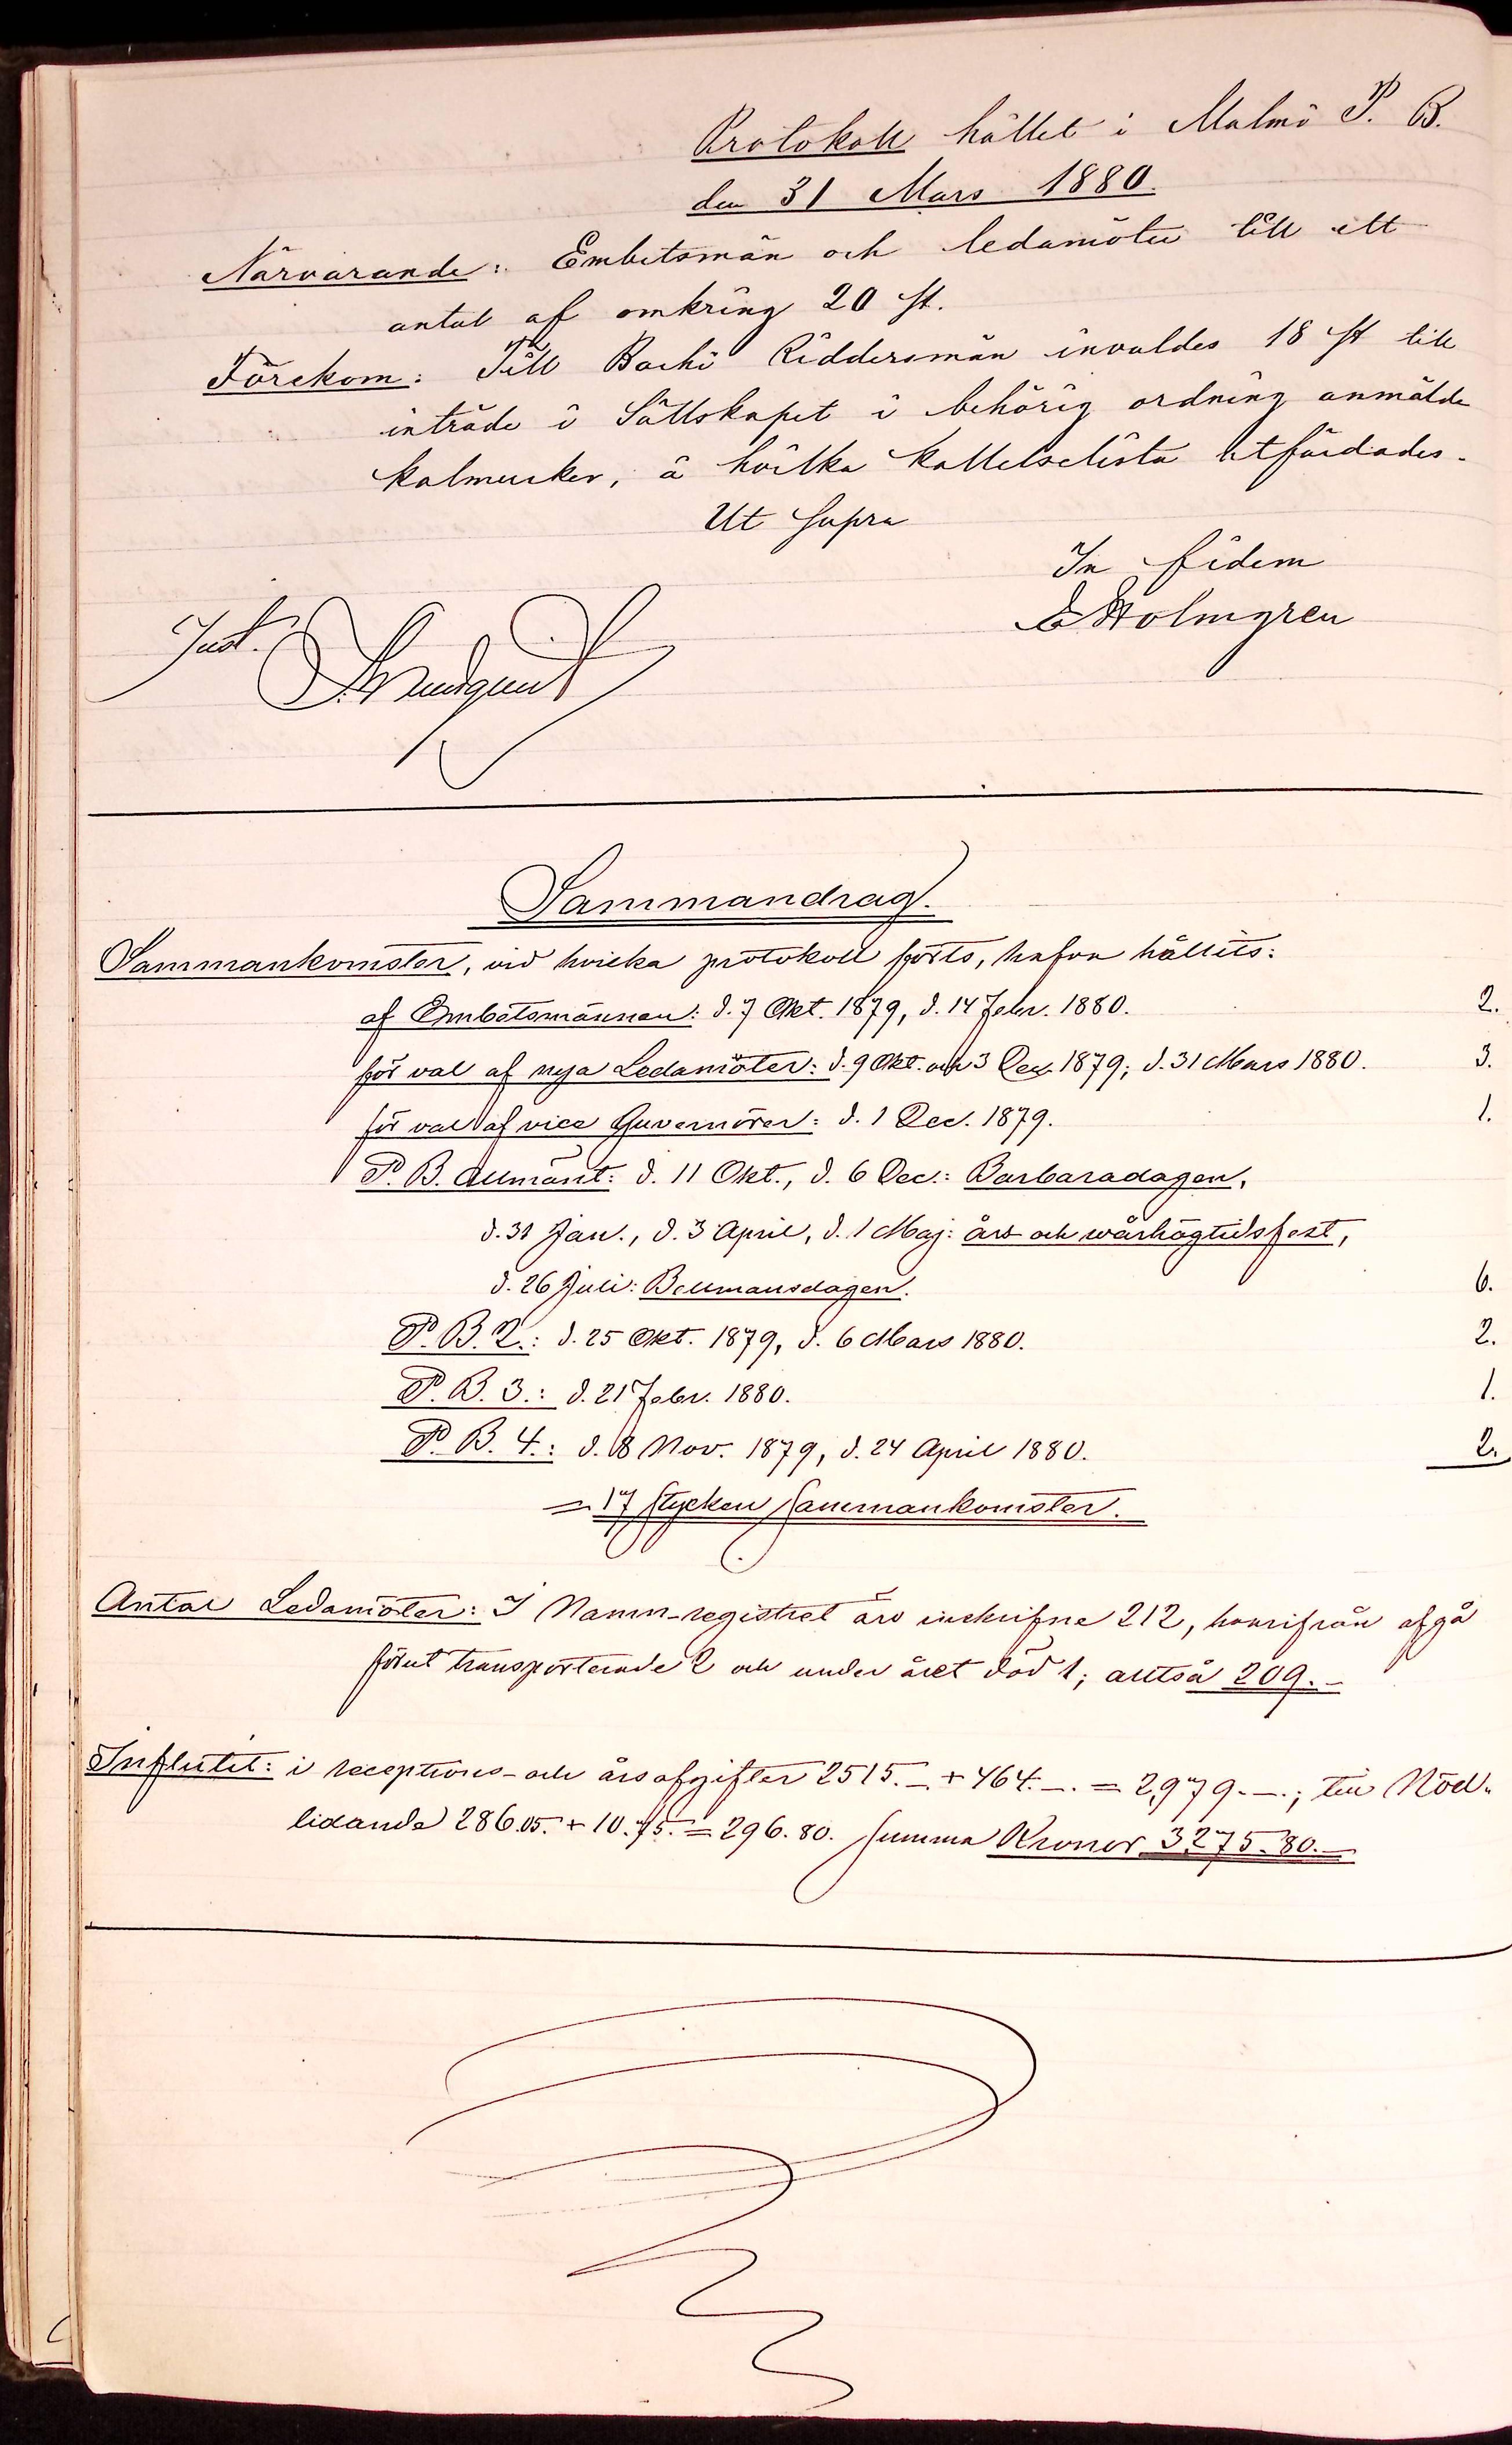 Protokoll hållet i Malmö P. B.
den 31 Mars 1880.
Närvarande: Embetsmän och ledamöter till ett
antal af omkring 20 st.
Förekom: Till Bachi Riddersmän invaldes 18 st till
inträde i Sällskapet i behörig ordning anmälde
kalmucker, å hvilka kallelselista utfärdades.
Ut supra
In fidem
E Holmgren
Just.
Sammandrag.
Sammankomster, vid hvilka protokoll förts, hafva hållits:
af Embetsmännen: d. 7 Okt. 1879, d. 14 Febr. 1880. 2.
för val af nya Ledamöter: d. 9 Okt. och 3 Dec. 1879; d. 31 Mars 1880. 3.
för val af vice Guvernörer: d. 1 Dec. 1879. 1.
P. B. Allmänt: d. 11 Okt., d. 6 Dec.: Barbaradagen,
d. 31 Jan., d. 3 April, d. 1 Maj: års- och wårhögtidsfest,
d. 26 Juli: Bellmansdagen. 6.
P. B. 2.: d. 25 Okt. 1879, d. 6 Mars 1880. 2.
P. B. 3.: d. 21 Febr. 1880. 1.
P. B. 4.: d. 8 Nov. 1879, d. 24 April 1880. 2.
= 17 stycken sammankomster.
Antal Ledamöter: I Namn-registret äro inskrifne 212, hvarifrån afgå
förut transporterade 2 och under året död 1; alltså 209.-
Influtit: i receptions- och årsafgifter 2515.- + 464.-. = 2,979.-.; till Nöd-
lidande 286.05. + 10.75. = 296.80. Summa Kronor 3,275.80.-